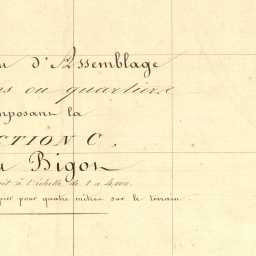 d'Assemblage
ou quartiers
mposant la
CTION C.
Bigot
à l'échelle de 1 à 4000
pour quatre mètres sur le terrain